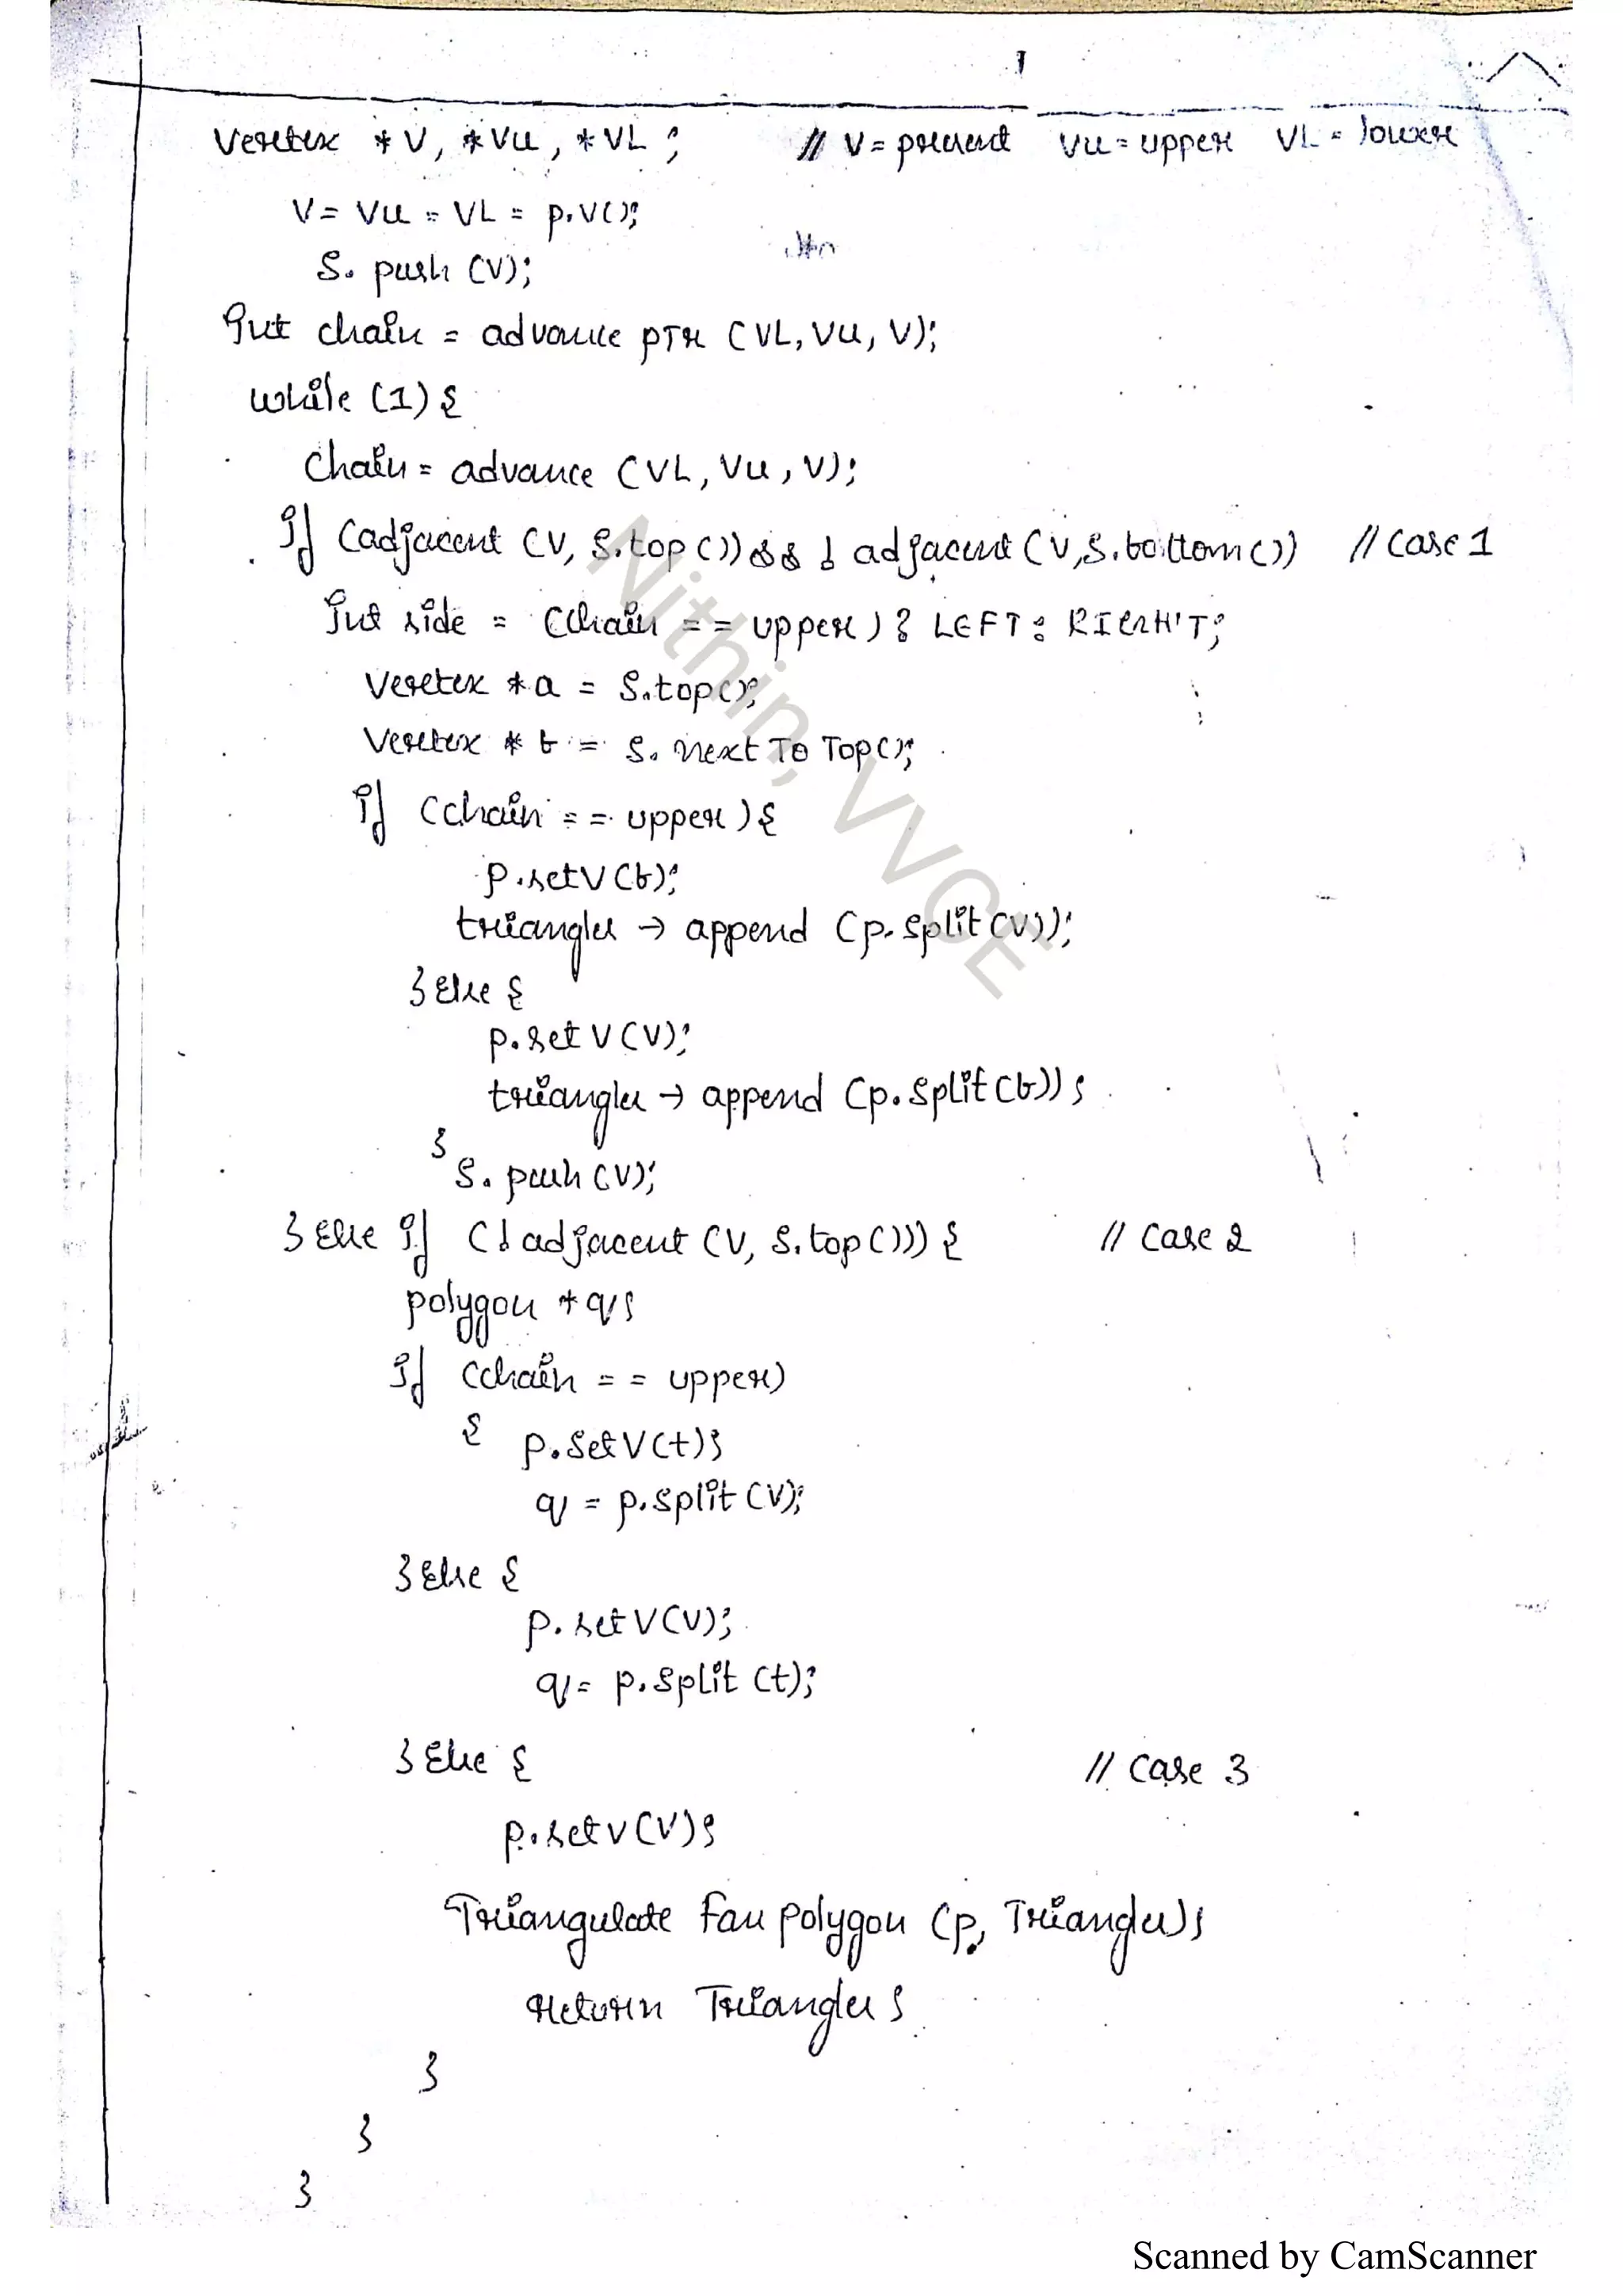 Vertex *V, *VU, *VL; // V = present VU = upper VL = lower
V = VU = VL = p.V();
S.push (V);
Int chain = advance PTR (VL, VU, V);
while (1) {
chain = advance (VL, VU, V);
If (adjacent (V, S.top ()) && ! adjacent (V, S.bottom ()) // Case 1
Int side = (chain == upper) ? LEFT : RIGHT;
Vertex *a = S.top();
Vertex *b = S. Next To Top();
If (chain == upper) {
P.setV (b);
triangles → append (p.split (V));
} Else {
P.set V (V);
triangles → append (p.split (b));
}
S. push (V);
} Else If (! adjacent (V, S.top ())) { // Case 2
polygon *q;
If (chain == upper)
{ P.set V (t);
q = p.split (V);
} Else {
P. set V (V);
q = p.split (t);
} Else { // Case 3
P.set V (V);
Triangulate Fan polygon (p, Triangles);
Return Triangles;
}
}
}
Nithin, VVCE
Scanned by CamScanner